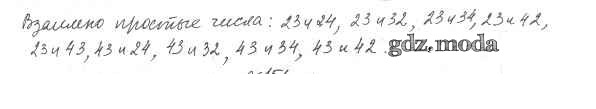 Взаимно простые числа: 23 и 24, 23 и 32, 23 и 34, 23 и 42,
23 и 43, 43 и 24, 43 и 32, 43 и 34, 43 и 42. gdz.moda